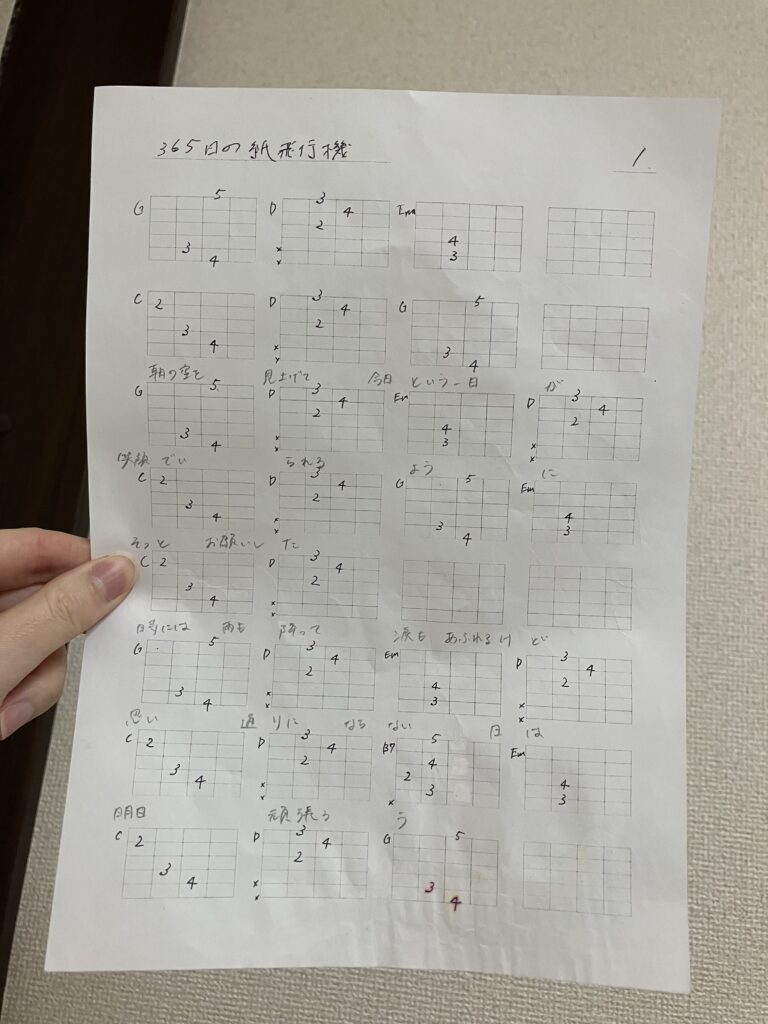 365日の紙飛行機 1.
G 5 3 4 D 3 4 2 x x Em 4 3
C 2 3 4 D 3 4 2 x x G 5 3 4
朝の空を 見上げて 今日 という一日 が
G 5 3 4 D 3 4 2 x x Em 4 3 D 3 4 2 x x
笑顔 でい られる よう に
C 2 3 4 D 3 4 2 x x G 5 3 4 Em 4 3
そっと お願いし た
C 2 3 4 D 3 4 2 x x
時には 雨も 降って 涙も あふれる けど
G 5 3 4 D 3 4 2 x x Em 4 3 D 3 4 2 x x
思い 通りに なら ない 日 は
C 2 3 4 D 3 4 2 x x B7 5 4 2 3 x Em 4 3
明日 頑張ろ う
C 2 3 4 D 3 4 2 x x G 5 3 4